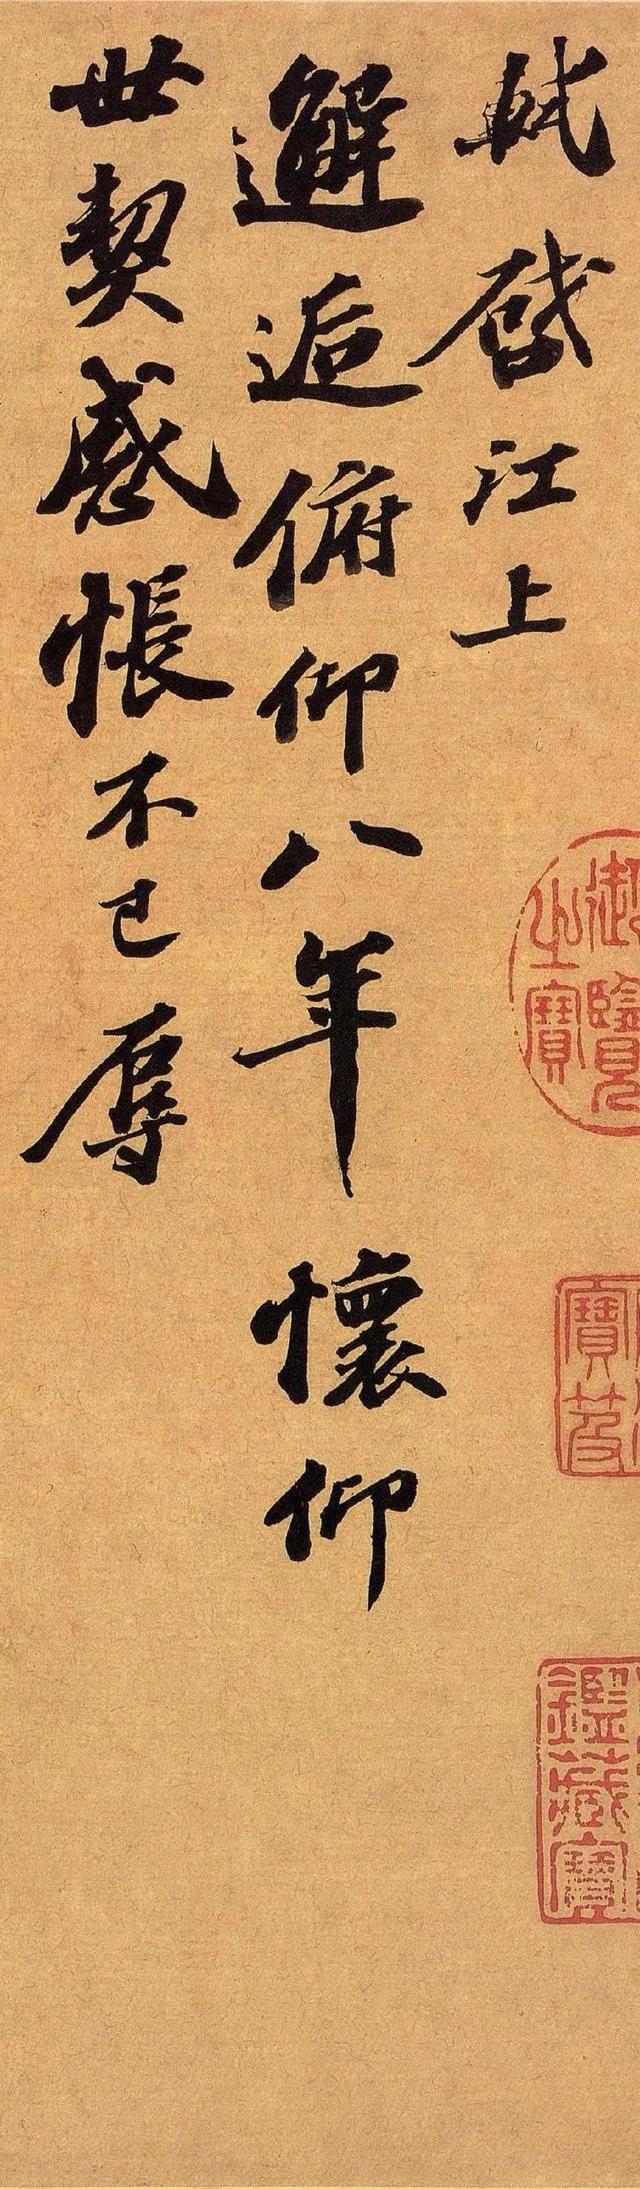 軾啓江上
邂逅俯仰八年懷仰
世契感悵不已辱
御覽之寶
寶笈
鑑藏寶